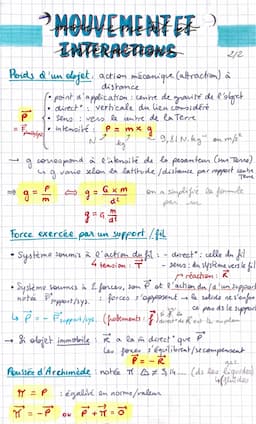 MOUVEMENT ET
INTERACTIONS
2/2
Poids d'un objet : action mécanique (attraction) à
distance
• point d'application : centre de gravité de l'objet
• direct° : verticale du lieu considéré
• sens : vers le centre de la Terre
• intensité : P = m × g
P⃗
N kg 9,81 N.kg⁻¹ ou m/s²
→ g correspond à l'intensité de la pesanteur (sur Terre)
g varie selon la latitude / distance par rapport centre Terre
⇒ g = P/m ⇔ g = G × m / d²
on a simplifié la formule
par m
g = G m/d²
Force exercée par un support / fil
• Système soumis à l'action du fil : - direct° : celle du fil
↳ tension : T⃗ - sens : du système vers le fil
réaction : R⃗
• Système soumis à 2 forces, son P⃗ et l'action du / d'un support
notée F⃗ support/sys. : forces s'opposent → le solide
↳ P⃗ = - F⃗ support/sys. (frottements : f⃗
→ Si objet immobile : R⃗ a la m direct° que P⃗
Les forces s'équilibrent/se compensent
P⃗ = - R⃗
Poussée d'Archimède : notée π⃗ ⚠ ≠ 3,14... (ds les liquides)
↳ fluides
π = P : égalité en norme/valeur
π⃗ = -P⃗ ou P⃗ + π⃗ = 0⃗